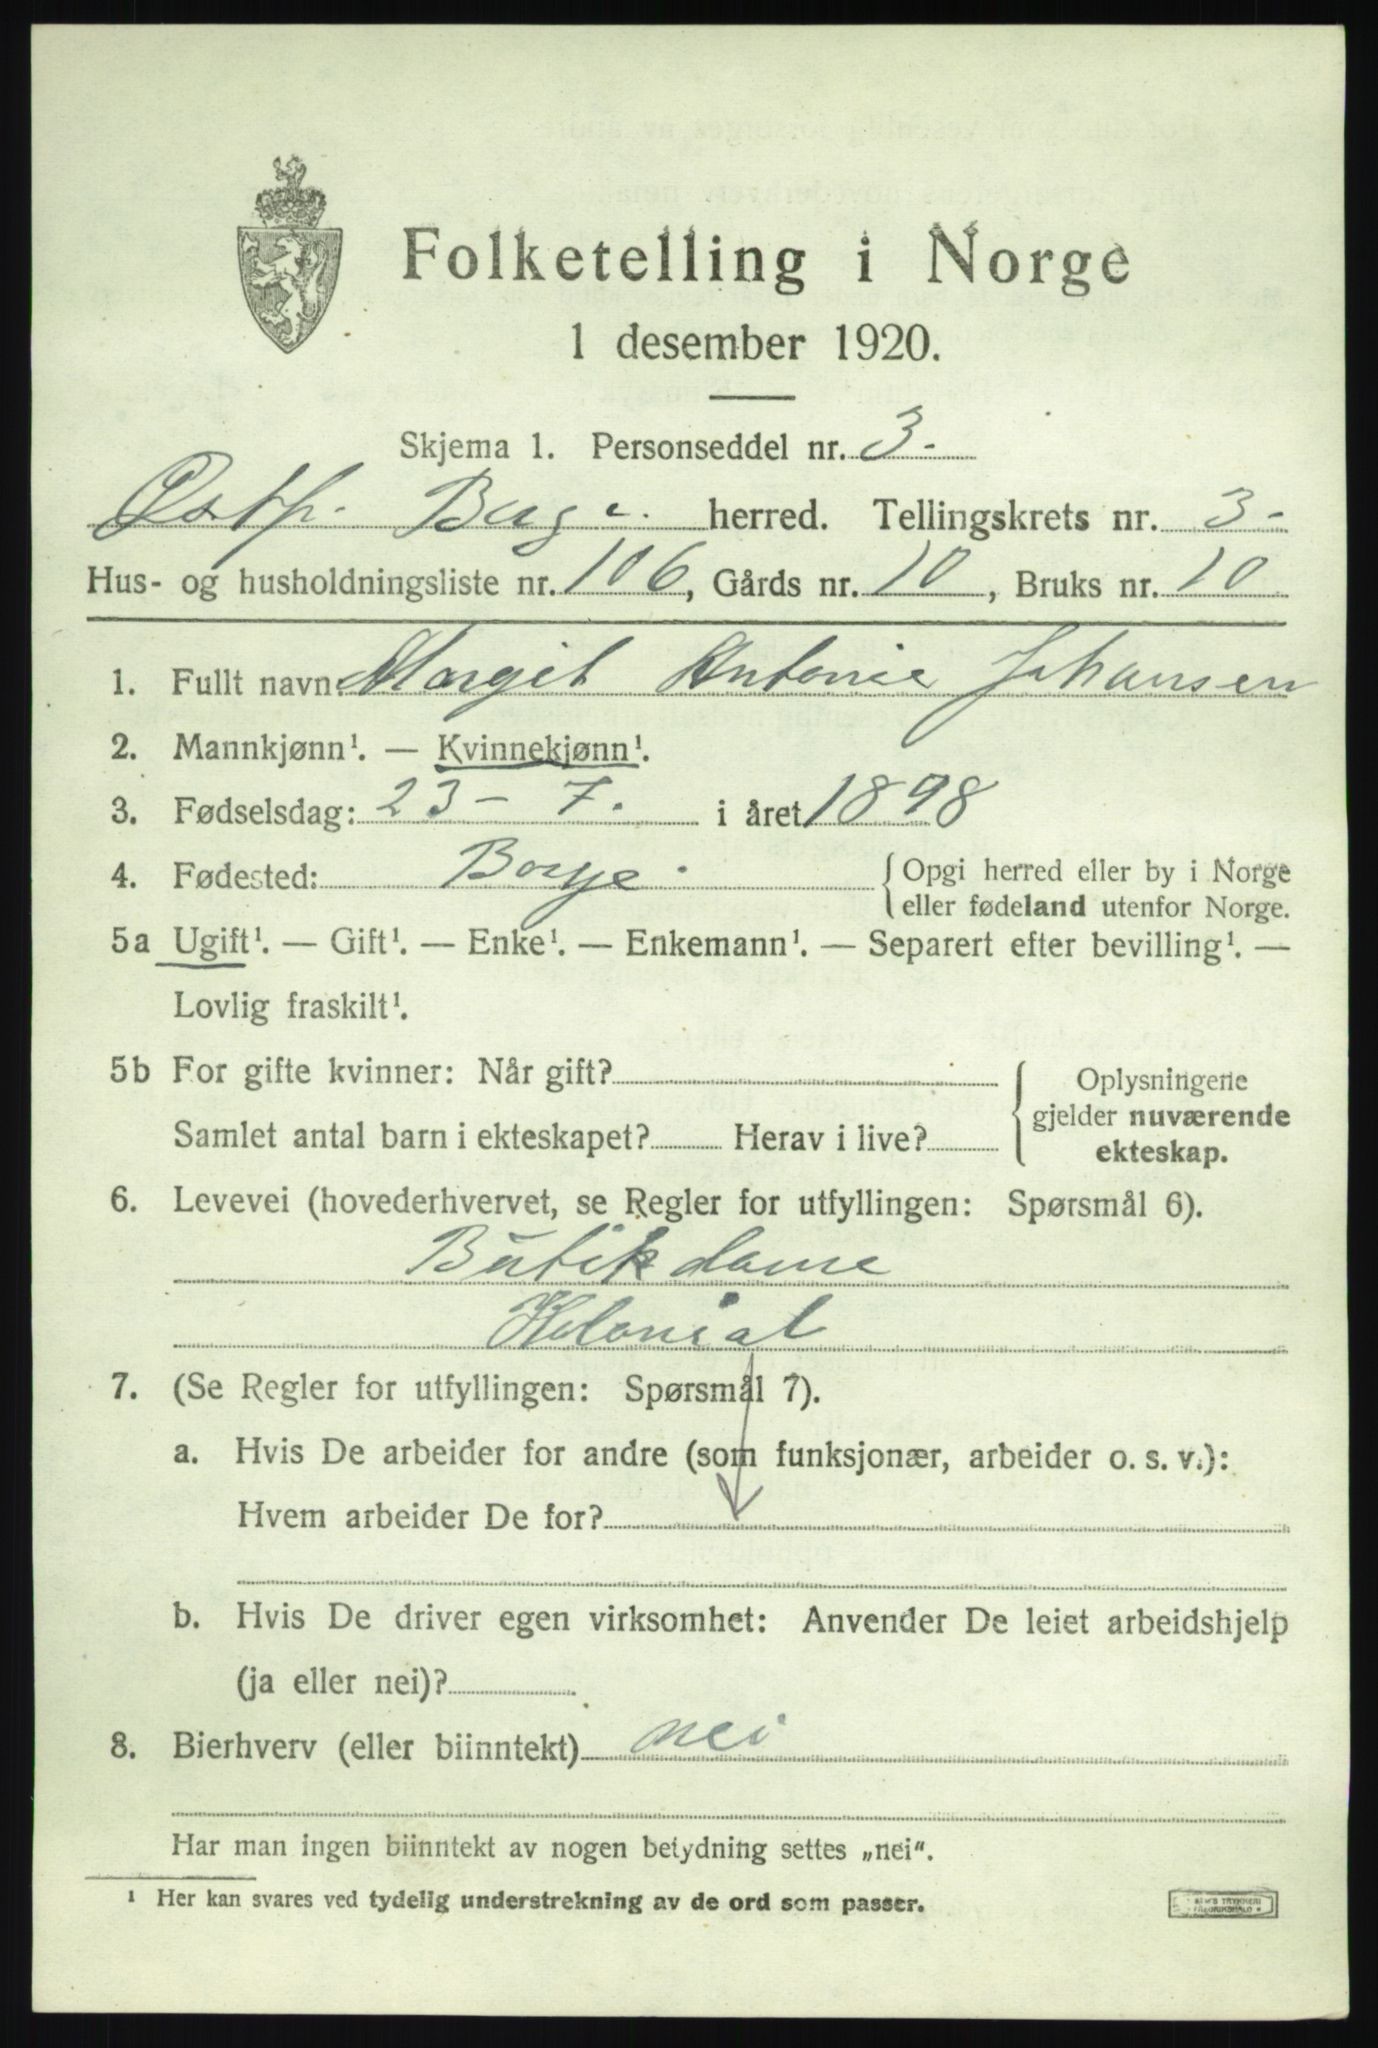 Folketelling i Norge
1 desember 1920.
Skjema 1. Personseddel nr. 3-
Østf. Borge herred. Tellingskrets nr. 3-
Hus- og husholdningsliste nr. 106, Gårds nr. 10, Bruks nr. 10
1. Fullt navn: Margit Antonie Johansen
2. Mannkjønn¹. — Kvinnekjønn¹.
3. Fødselsdag: 23 - 7. i året 1898
4. Fødested: Borge. {Opgi herred eller by i Norge
eller fødeland utenfor Norge.
5a Ugift¹. — Gift¹. — Enke¹. — Enkemann¹. — Separert efter bevilling¹. —
Lovlig fraskilt¹.
5b For gifte kvinner: Når gift?
Samlet antal barn i ekteskapet? Herav i live?
{Oplysningene
gjelder nuværende
ekteskap.
6. Levevei (hovederhvervet, se Regler for utfyllingen: Spørsmål 6).
Butikdame
Kolonial
7. (Se Regler for utfyllingen: Spørsmål 7).
a. Hvis De arbeider for andre (som funksjonær, arbeider o. s. v.):
Hvem arbeider De for?
b. Hvis De driver egen virksomhet: Anvender De leiet arbeidshjelp
(ja eller nei)?
8. Bierhverv (eller biinntekt) nei
Har man ingen biinntekt av nogen betydning settes „nei".
¹ Her kan svares ved tydelig understrekning av de ord som passer.